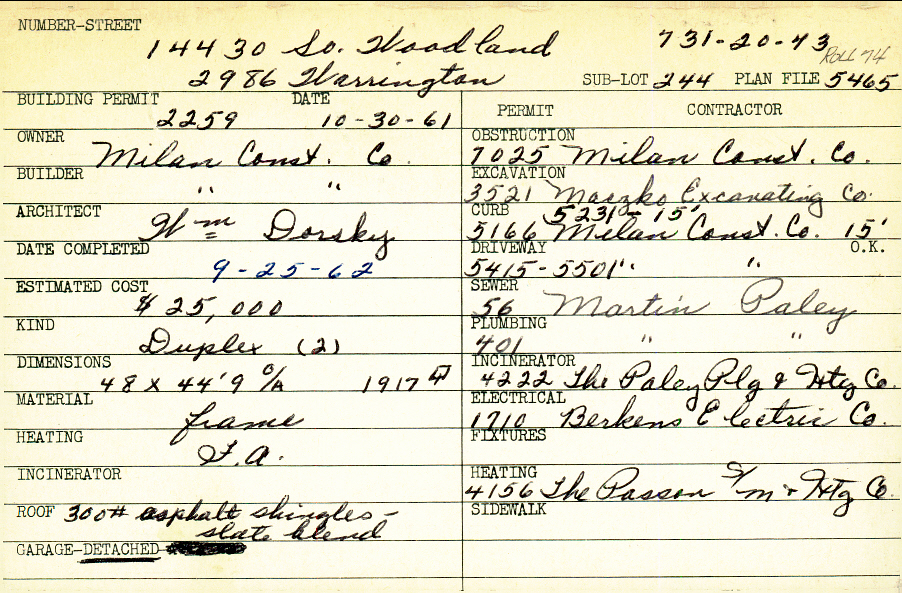 NUMBER-STREET
14430 So. Woodland 731-20-43
ROLL 74
2986 Warrington SUB-LOT 244 PLAN FILE 5465
BUILDING PERMIT DATE
2259 10-30-61
OWNER
Milan Const. Co.
BUILDER
" "
ARCHITECT
Wm Dorsky
DATE COMPLETED
9-25-62
ESTIMATED COST
$ 25,000
KIND
Duplex (2)
DIMENSIONS
48 x 44'9 O/A 1917
MATERIAL
frame
HEATING
F.A.
INCINERATOR
ROOF 300# asphalt shingles-
slate blend
GARAGE-DETACHED
PERMIT CONTRACTOR
OBSTRUCTION
7025 Milan Const. Co.
EXCAVATION
3521 Maszko Excavating Co.
CURB 5231 - 15'
5166 Milan Const. Co. 15'
DRIVEWAY O.K.
5415-5501 " "
SEWER
56 Martin Paley
PLUMBING
401 " "
INCINERATOR
4222 The Paley Plg & Htg Co.
ELECTRICAL
1710 Berkens Electric Co.
FIXTURES
HEATING
4156 The Passon S/m & Htg Co
SIDEWALK